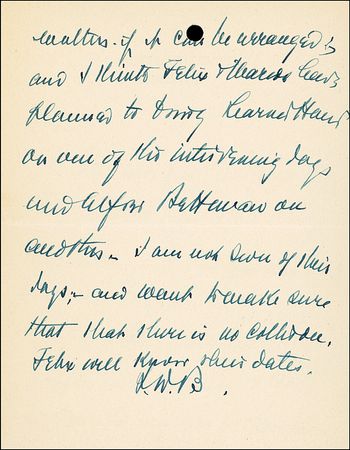 matters - if it can be arranged;
and I think Felix & Marion have
planned to bring Learned Hand
on one of the intervening days
and Alfred Bettman on
another. - I am not sure of their
days; - and want to make sure
that that there is no collision.
Felix will know their dates.
L.D.B.